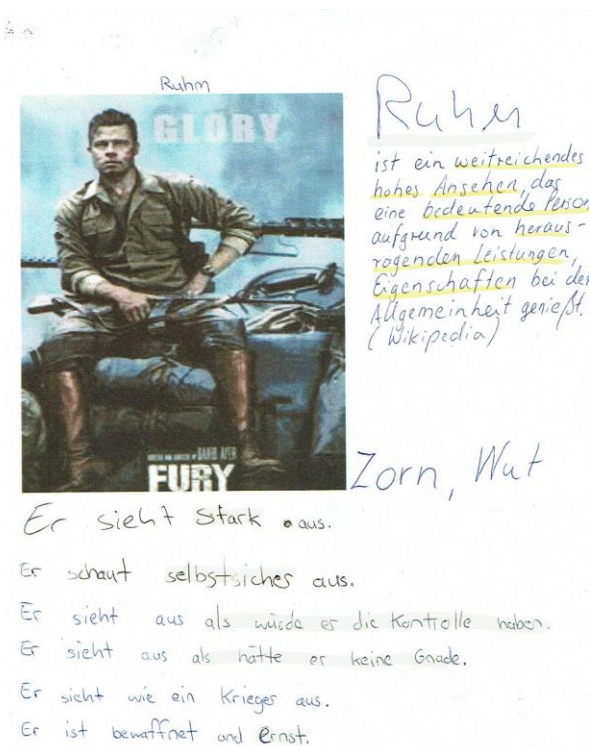 Ruhm
GLORY
WRITTEN AND DIRECTED BY DAVID AYER
FURY
Ruhm
ist ein weitreichendes
hohes Ansehen, das
eine bedeutende Person
aufgrund von heraus-
ragenden Leistungen,
Eigenschaften bei der
Allgemeinheit genießt.
(Wikipedia)
Zorn, Wut
Er sieht Stark aus.
Er schaut selbstsicher aus.
Er sieht aus als würde er die Kontrolle haben.
Er sieht aus als hätte er keine Gnade.
Er sieht wie ein Krieger aus.
Er ist bewaffnet und Ernst.